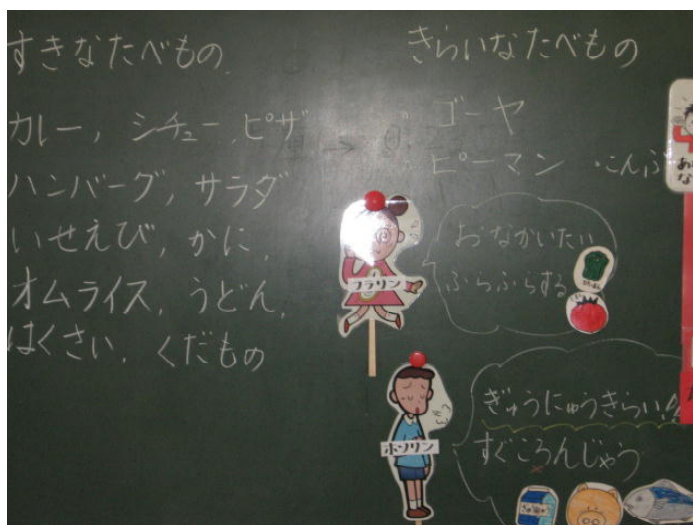 すきなたべもの
カレー, シチュー, ピザ
ハンバーグ, サラダ
いせえび, かに,
オムライス, うどん,
はくさい, くだもの
きらいなたべもの
ゴーヤ
ピーマン ・こんぶ
おなかいたい
ふらふらする
フラリン
ぎゅうにゅうきらい!!
すぐころんじゃう
ホソリン